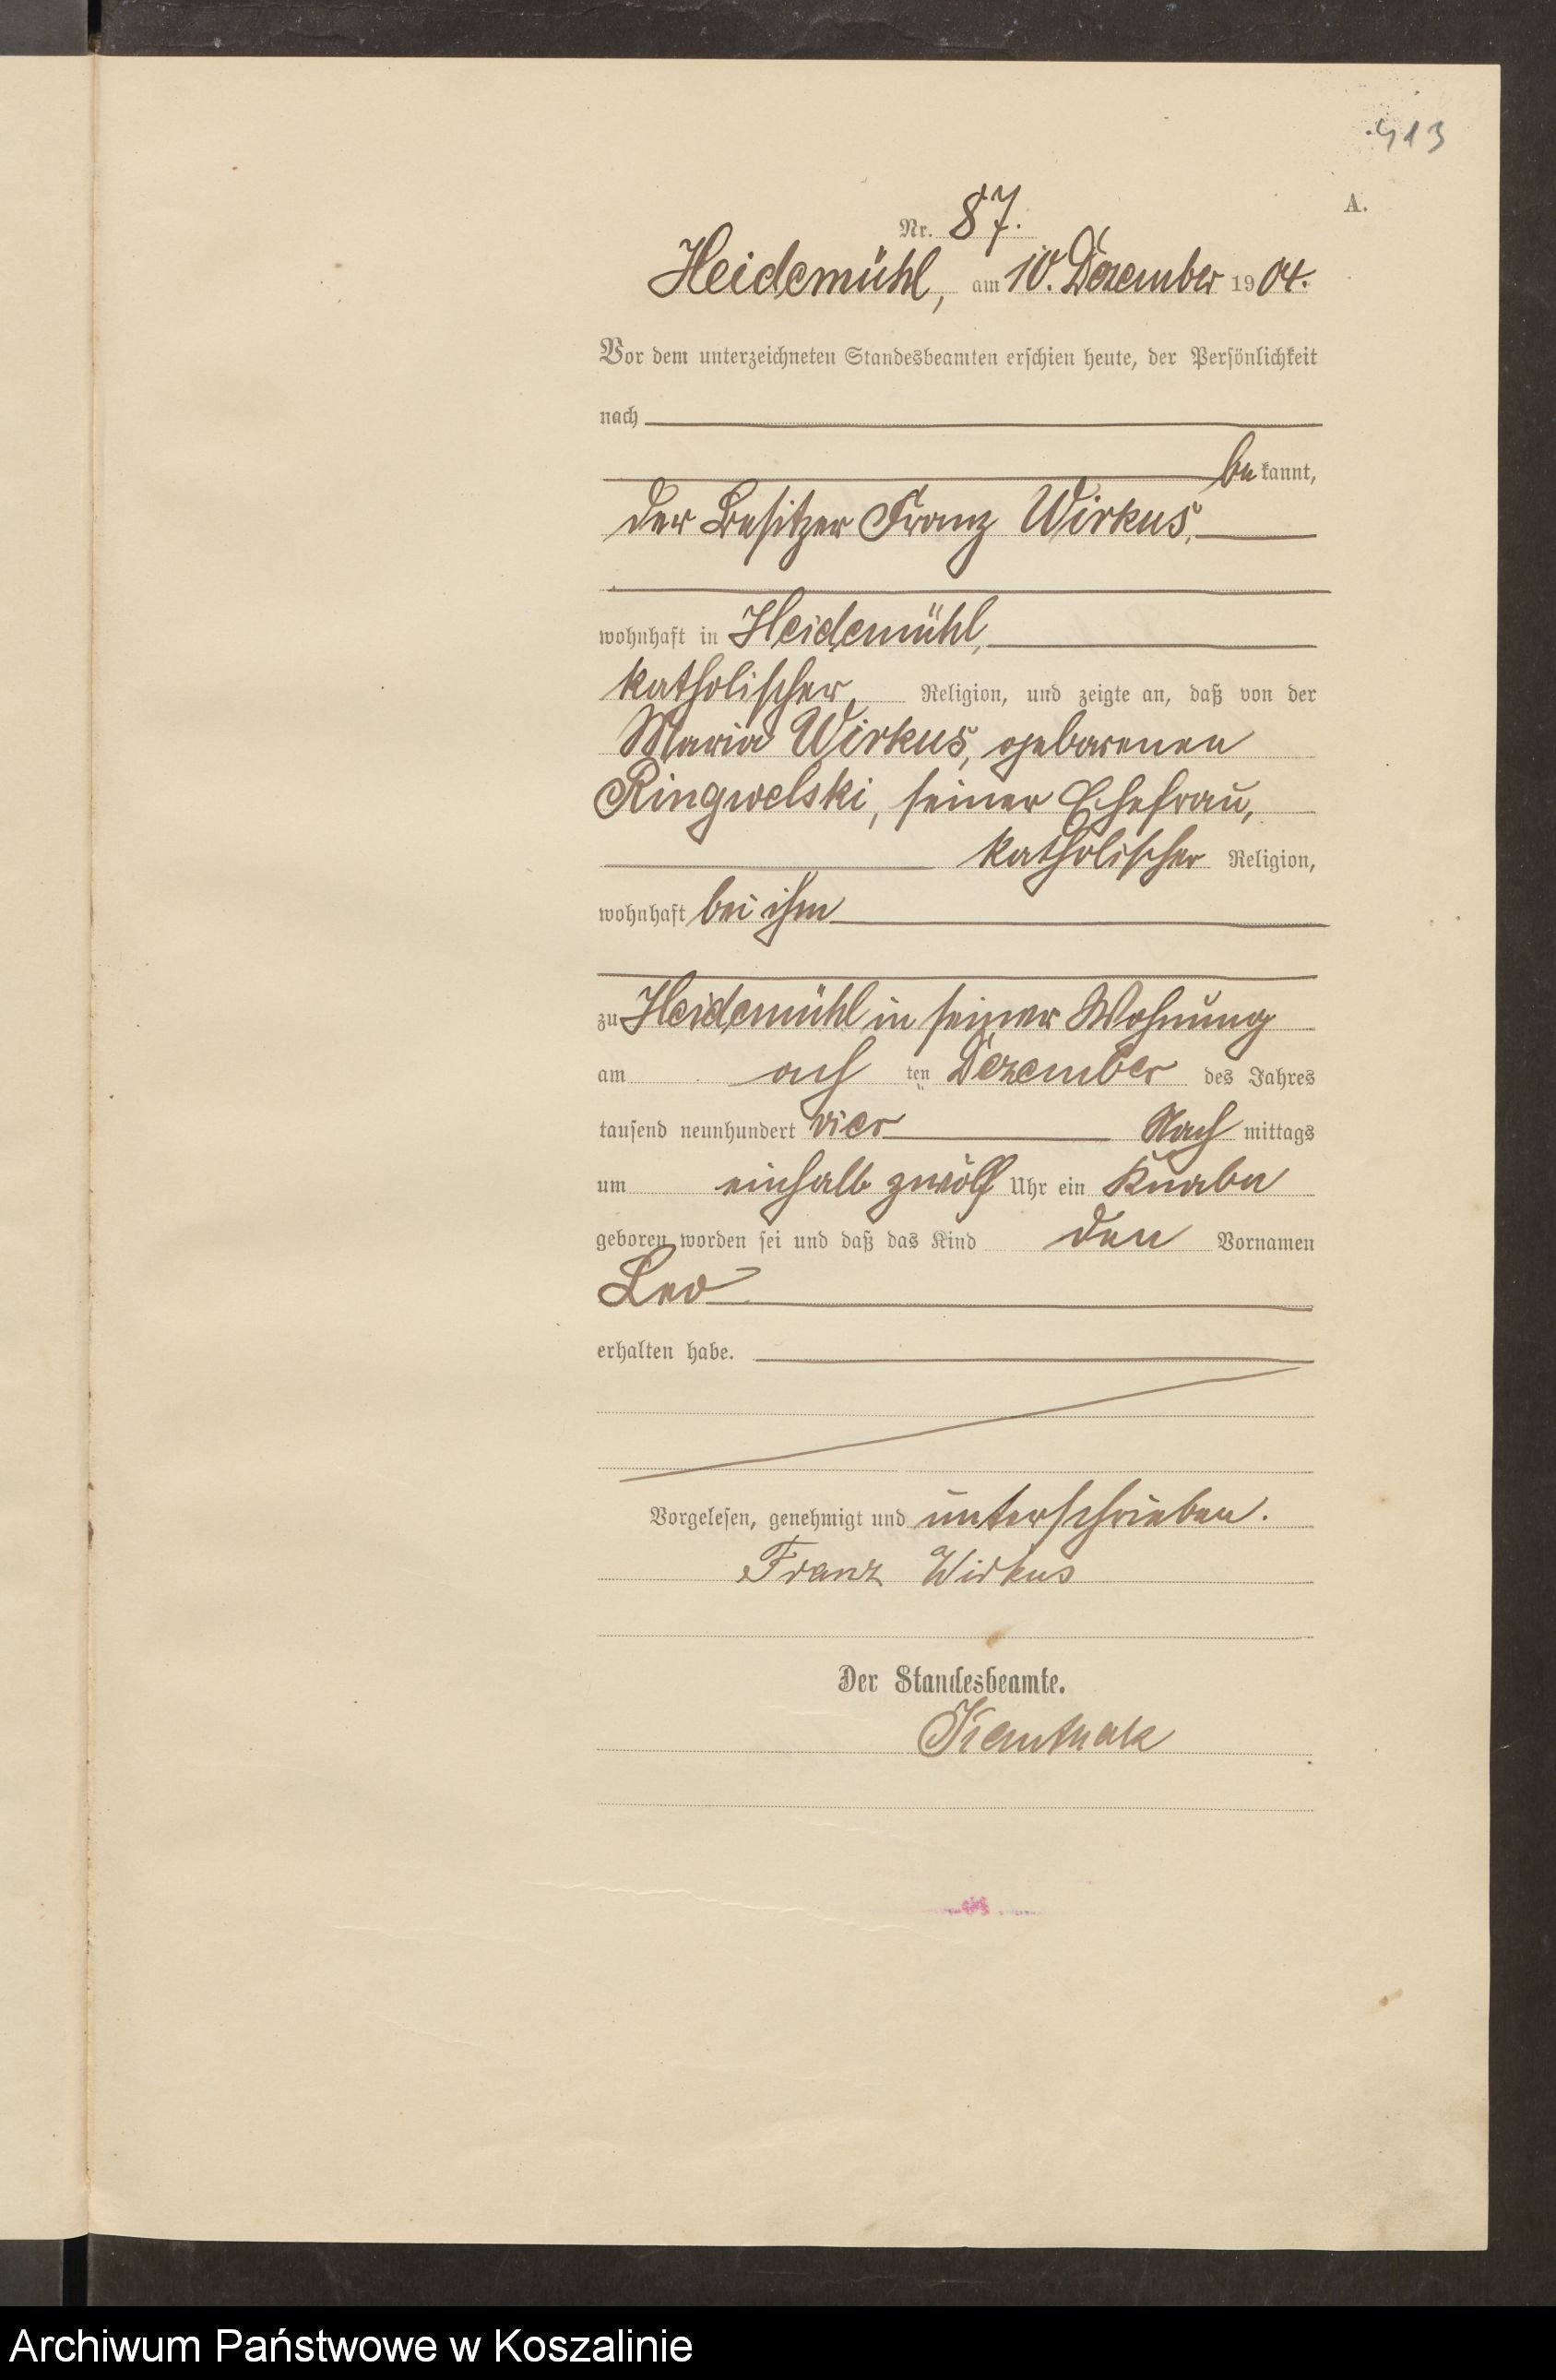 413
A.
Nr. 87.
Heidemühl, am 10. Dezember 1904.
Vor dem unterzeichneten Standesbeamten erschien heute, der Persönlichkeit
nach
be kannt,
der Besitzer Franz Wirkus,
wohnhaft in Heidemühl,
katholischer, Religion, und zeigte an, daß von der
Maria Wirkus, geborenen
Ringwelski, seiner Ehefrau,
katholischer Religion,
wohnhaft bei ihm
zu Heidemühl in seiner Wohnung
am ach ten Dezember des Jahres
tausend neunhundert vier Nach mittags
um einhalb zwölf Uhr ein Knabe
geboren worden sei und daß das Kind den Vornamen
Leo
erhalten habe.
Vorgelesen, genehmigt und unterschrieben.
Franz Wirkus
Der Standesbeamte.
Archiwum Państwowe w Koszalinie